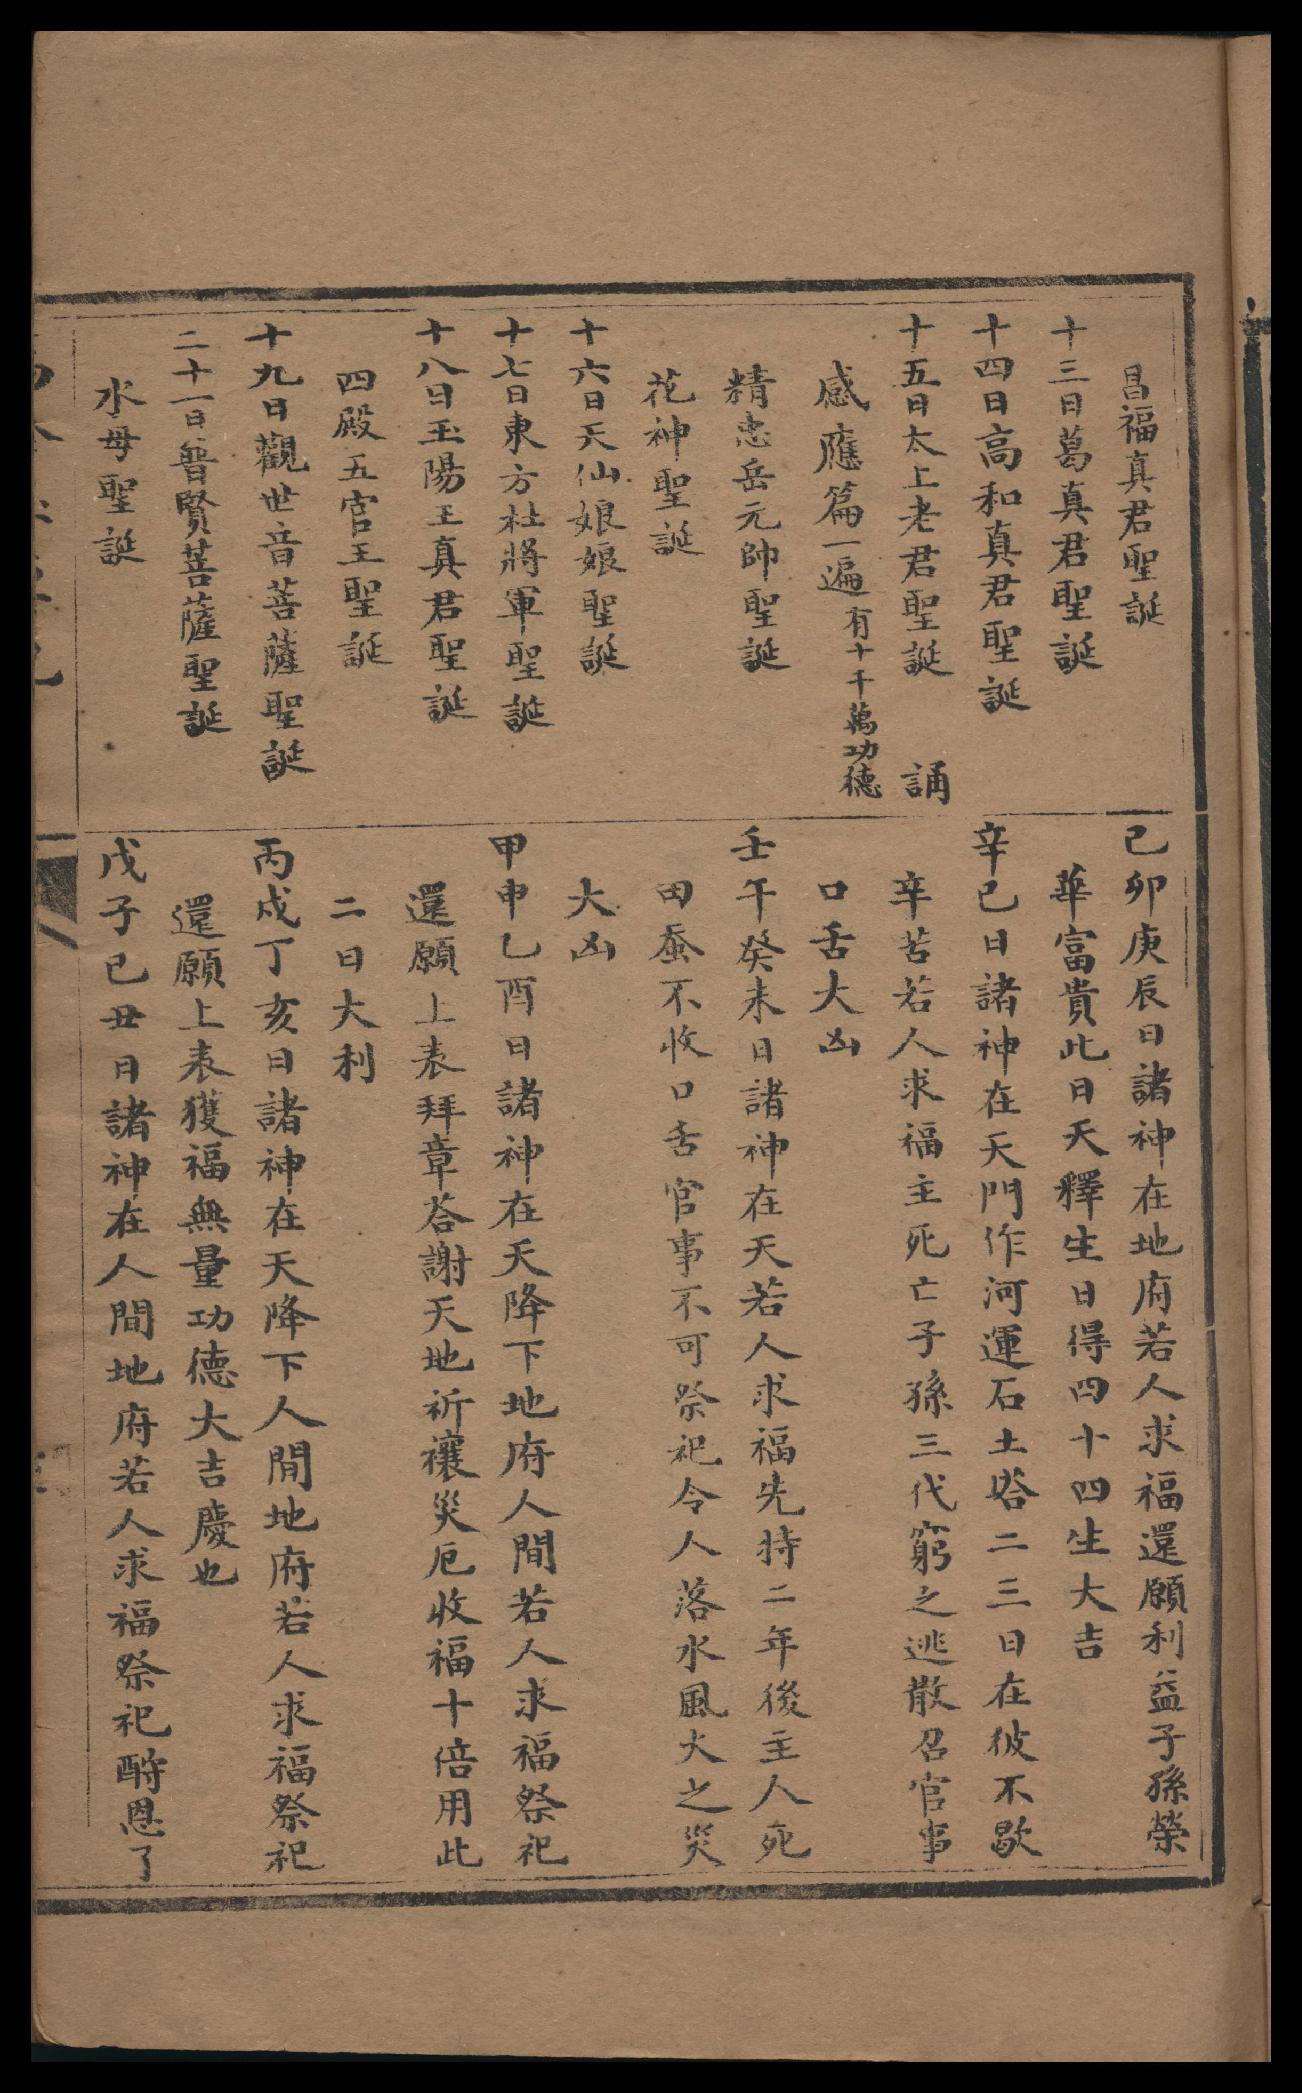 昌福真君聖誕
十三日葛真君聖誕
十四日高和真君聖誕
十五日太上老君聖誕　誦
感應篇一遍有十千萬功德
精忠岳元帥聖誕
花神聖誕
十六日天仙娘娘聖誕
十七日東方杜將軍聖誕
十八日玉陽王真君聖誕
四殿五官王聖誕
十九日觀世音菩薩聖誕
二十一日普賢菩薩聖誕
水母聖誕
己卯庚辰日諸神在地府若人求福還願利益子孫榮
華富貴此日天釋生日得四十四生大吉
辛巳日諸神在天門作河運石土塔二三日在彼不歇
辛苦若人求福主死亡子孫三代窮之逃散召官事
口舌大凶
壬午癸未日諸神在天若人求福先持二年後主人死
田蚕不收口舌官事不可祭祀令人落水風火之災
大凶
甲申乙酉日諸神在天降下地府人間若人求福祭祀
還願上表拜章荅謝天地祈禳災厄收福十倍用此
二日大利
丙戍丁亥日諸神在天降下人間地府若人求福祭祀
還願上表獲福無量功德大吉慶也
戊子己丑日諸神在人間地府若人求福祭祀酧恩了